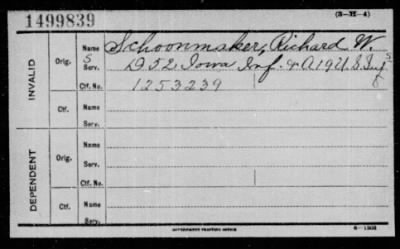 1499839
(3-H-4)
INVALID
Orig.
Name Schoonmaker, Richard W.
S
Serv. D 52 Iowa Inf. & A 19 U S Inf
Ctf. No. 1253239
Ctf.
Name
Serv.
DEPENDENT
Orig.
Name
Serv.
Ctf. No.
Ctf.
Name
Serv.
GOVERNMENT PRINTING OFFICE